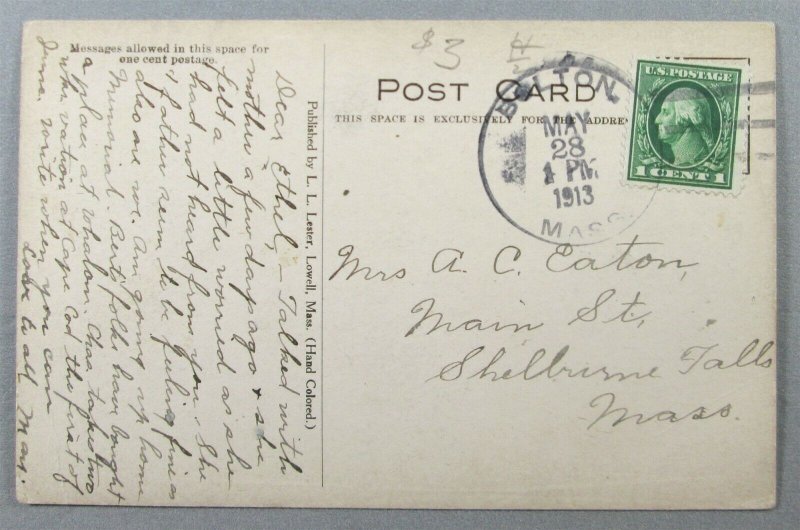 Messages allowed in this space for
one cent postage.
$3
POST CARD
THIS SPACE IS EXCLUSIVELY FOR THE ADDRE
BOLTON,
MAY
28
1 PM
1913
MASS.
U.S. POSTAGE
1 CENT 1
Dear Ethel,- Talked with
mother a few days ago & she
felt a little worried as she
had not heard from you. She
& father seem to be feeling fine as
also are we. Am going up home
Memorial. Bert' folks have bought
a place at Whalom. Chas. takes two
wks. vation at Cape Cod the first of
June. Write when you can
Love to all, May.
Published by L. L. Lester, Lowell, Mass. (Hand Colored.)
Mrs A. C. Eaton,
Main St,
Shelburne Falls
Mass.